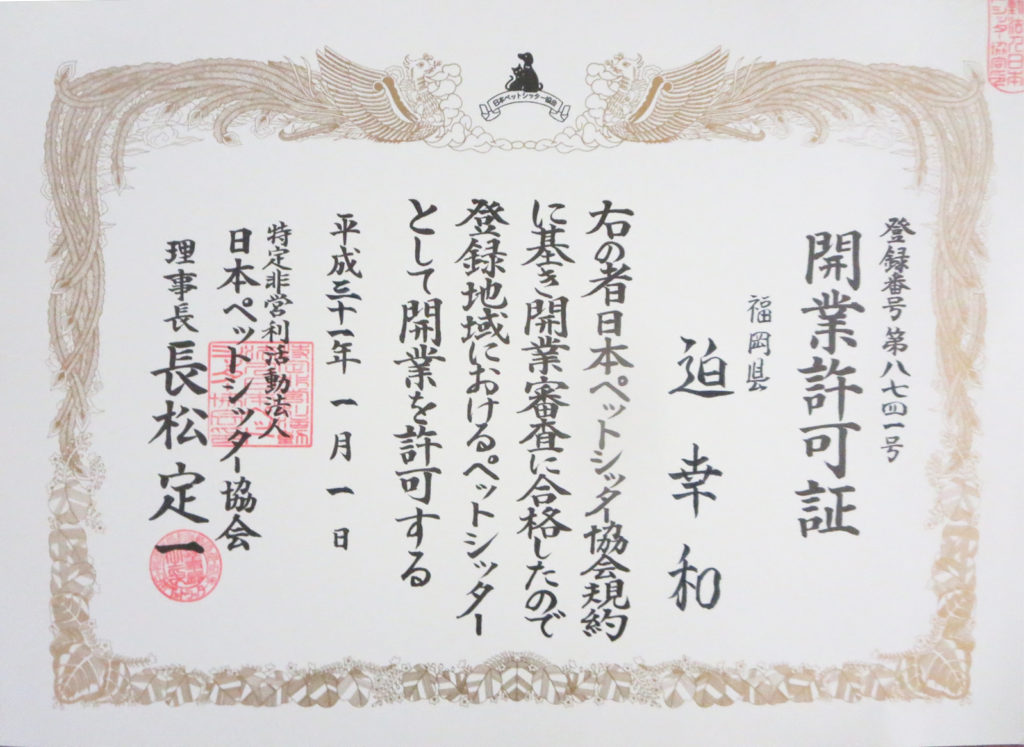 日本ペットシッター協会
登録番号第八七四一号
開業許可証
福岡県
迫幸和
右の者日本ペットシッター協会規約
に基き開業審査に合格したので
登録地域におけるペットシッター
として開業を許可する
平成三十一年一月一日
特定非営利活動法人
日本ペットシッター協会
理事長長松定一